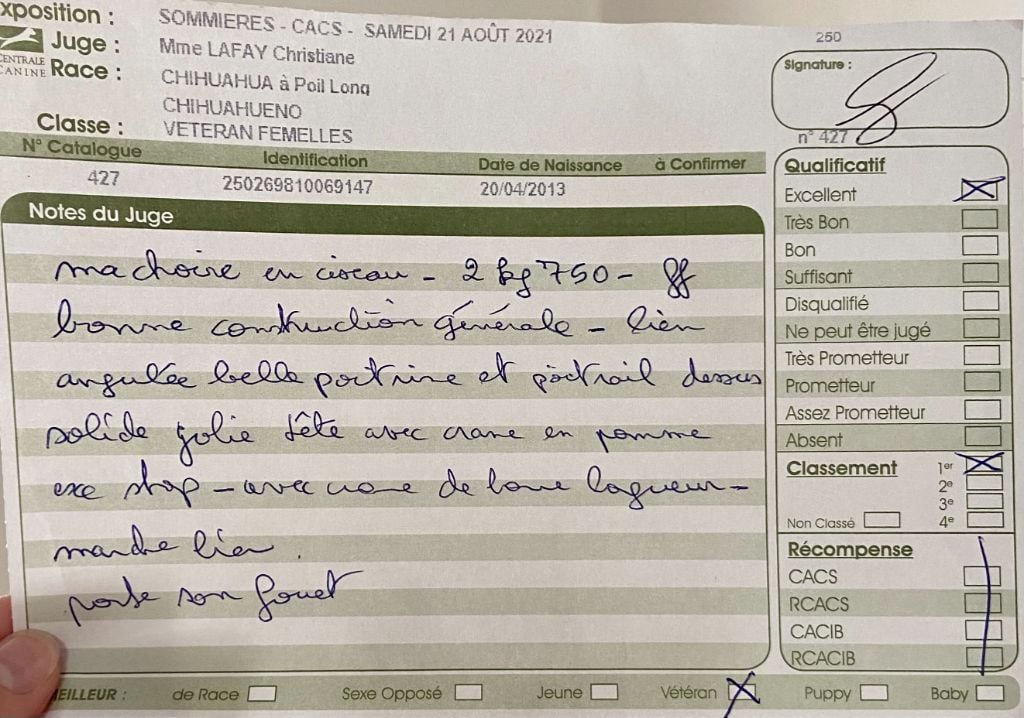 xposition : SOMMIERES - CACS - SAMEDI 21 AOÛT 2021
Juge : Mme LAFAY Christiane
CENTRALE
CANINE
Race : CHIHUAHUA à Poil Long
CHIHUAHUENO
Classe : VETERAN FEMELLES
N° Catalogue Identification Date de Naissance à Confirmer
427 250269810069147 20/04/2013
Notes du Juge
machoire en ciseau - 2 kg 750 -
bonne construction générale - bien
angulée belle poitrine et poitrail dessus
solide jolie tête avec crane en pomme
exc stop - avec cane de bone lagueur -
marche bien .
porte son fouet
250
Signature :
n° 427
Qualificatif
Excellent
Très Bon
Bon
Suffisant
Disqualifié
Ne peut être jugé
Très Prometteur
Prometteur
Assez Prometteur
Absent
Classement 1er
2e
3e
Non Classé 4e
Récompense
CACS
RCACS
CACIB
RCACIB
MEILLEUR : de Race Sexe Opposé Jeune Vétéran Puppy Baby